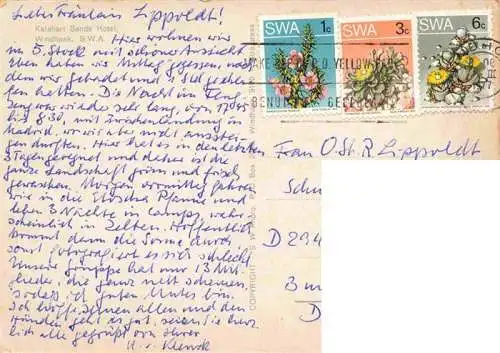 Liebes Fräulein Lippoldt!
Kalahari Sands Hotel,
Windhoek, S.W.A.
Hier wohnen wir
im 5. Stock mit schöner Aussicht
oben haben wir Mittag gegessen, nach
dem wir gebadet und 3 Std geschla-
fen hatten. Die Nacht im Flug-
zeug war wieder sehr lang, von 1700
bis 8.30, mit Zwischenlandung in
Madrid, wo wir aber nicht ausstei-
gen durften. Hier hat es in den letzten
3 Tagen geregnet und daher ist die
ganze Landschaft grün und frisch
gewaschen. Morgen vormittag fahren
wir in die Etoscha Pfanne und
leben 3 Nächte in Camps, wahr-
scheinlich in Zelten. Hoffentlich
kommt denn die Sonne durch
sonst fotografiert es sich schlecht
Unsere Gruppe hat nur 13 Mit-
glieder, die ganz nett scheinen,
sodass ich guten Mutes bin.
Ich hoffe, Ihnen allen und den
Hunden geht es gut, seien Sie herz-
lich alle gegrüßt von Ihrer
H. v. Klenck
SWA 1c
SWA 3c
SWA 6c
COPYRIGHT
Frau O.St.R. Lippoldt
Sch
D 294
D